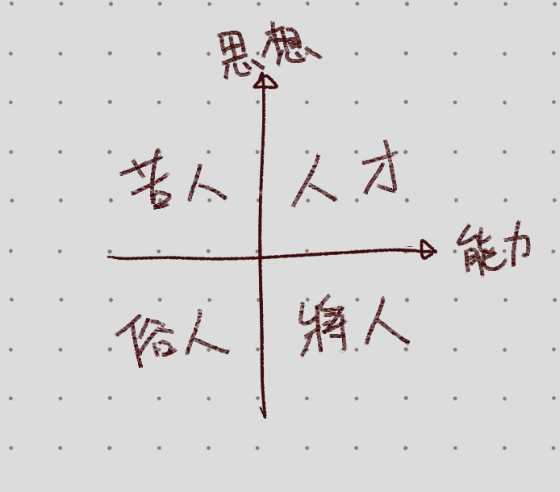 思想
苦人 人才
能力
俗人 將人